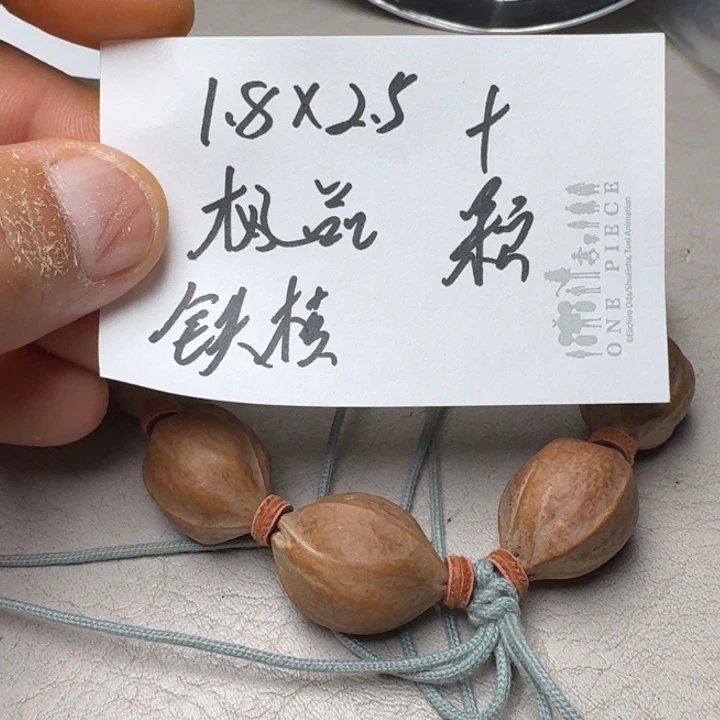 1.8×2.5
极品
铁核
十
粒
ONE PIECE
©Eiichiro Oda/Shueisha, Toei Animation